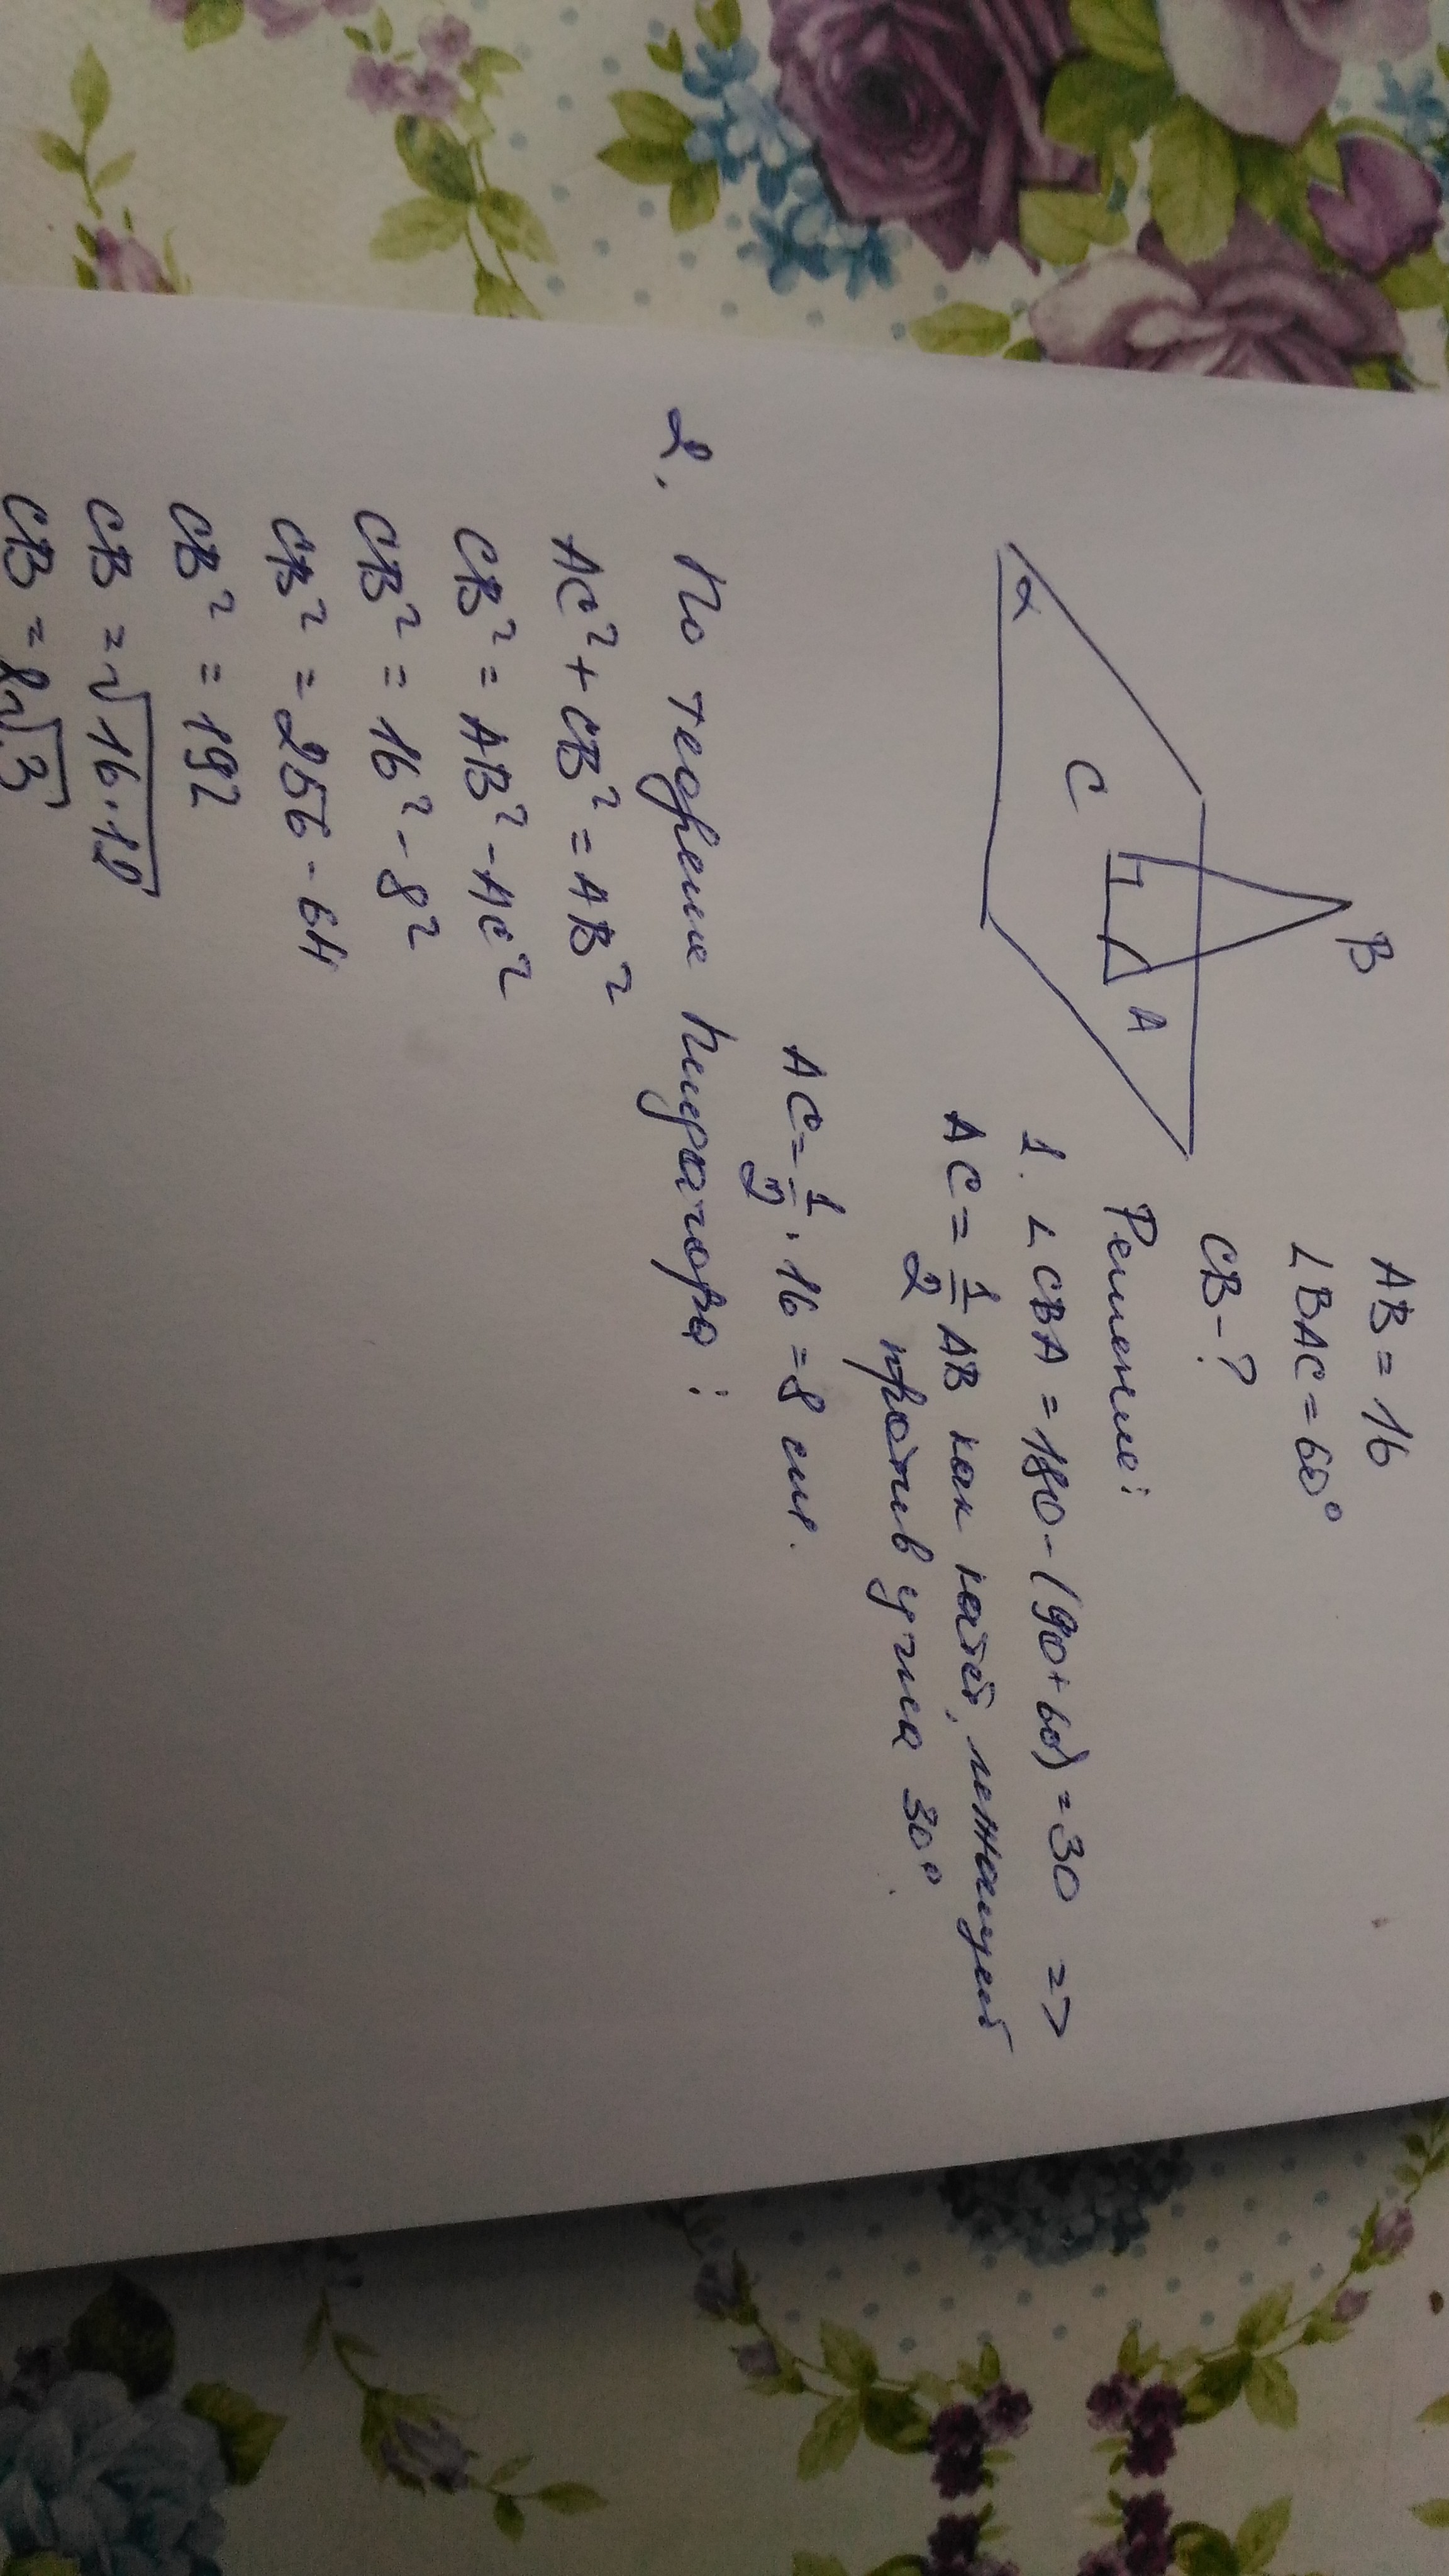 B
C
A
α
AB = 16
∠BAC = 60°
CB - ?
Решение:
1. ∠CBA = 180 - (90 + 60) = 30 =>
AC = 1/2 AB как катет, лежащий
против угла 30°
AC = 1/2 · 16 = 8 см.
2. По теореме Пифагора:
AC² + CB² = AB²
CB² = AB² - AC²
CB² = 16² - 8²
CB² = 256 - 64
CB² = 192
CB = √16·12
CB = 8√3